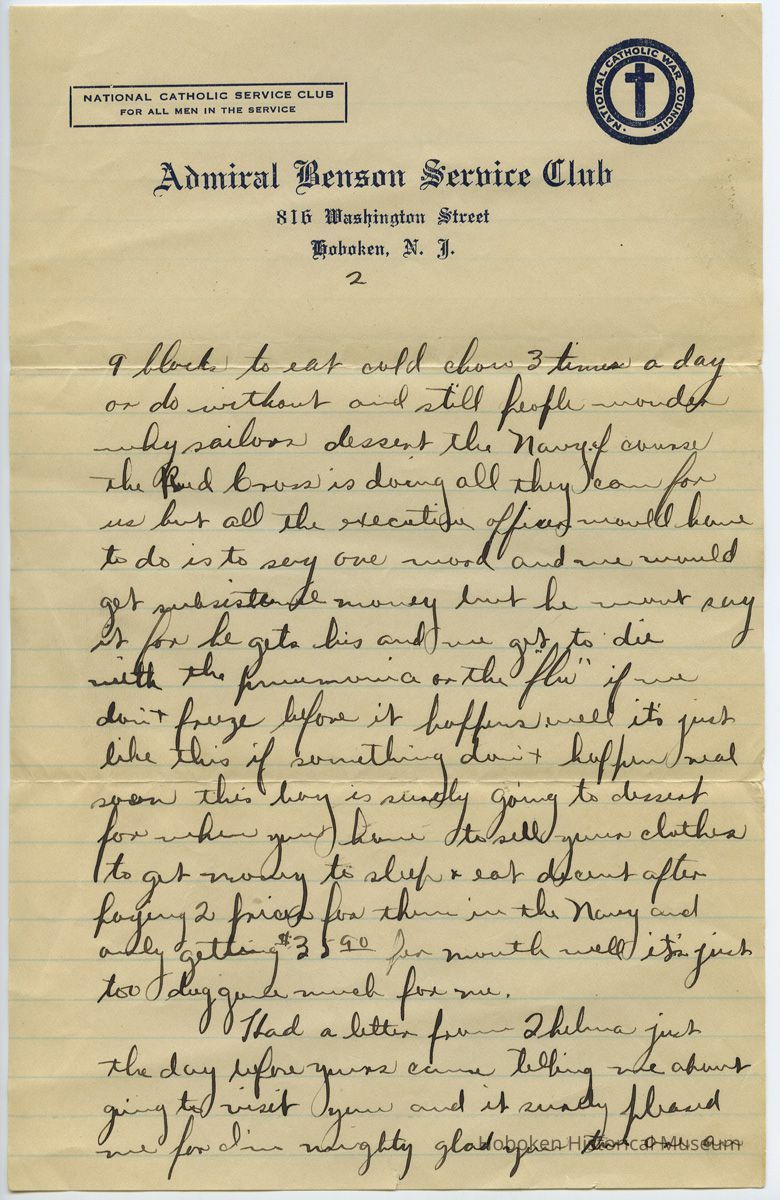 NATIONAL CATHOLIC SERVICE CLUB
FOR ALL MEN IN THE SERVICE
NATIONAL CATHOLIC WAR COUNCIL
Admiral Benson Service Club
816 Washington Street
Hoboken, N. J.
2
9 blocks to eat cold chow 3 times a day
or do without and still people wonder
why sailors dessert the Navy of course
the Red Cross is doing all they can for
us but all the executive officer would have
to do is to say one word and we would
get subsistence money but he wont say
it for he gets his and we get to die
with the pneumonia or the "flu" if we
don't freeze before it happens. well it's just
like this if something don't happen real
soon this boy is surely going to dessert
for when you have to sell your clothes
to get money to sleep & eat decent after
paying 2 prices for them in the Navy and
only getting $35 90 per month well it's just
too much for me.
Had a letter from Thelma just
the day before yours came telling me about
going to visit you and it surely pleased
me for I'm mighty glad you
Hoboken Historical Museum